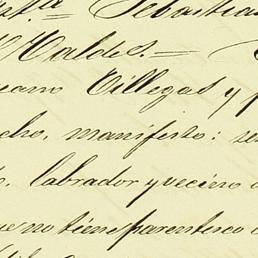 Sebastia
Valdes.—
cano Villegas y p
cho, manifesto: se
labrador y vecino
que no tiene parentesco